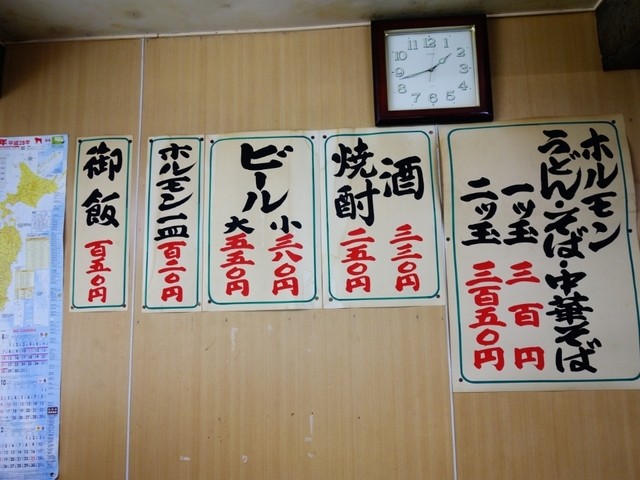 ホルモン
うどん・そば・中華そば
一ッ玉 三百円
二ッ玉 三百五〇円
酒 二三〇円
焼酎 二五〇円
ビール
小 三八〇円
大 五五〇円
ホルモン一皿 百二〇円
御飯 百五〇円
平成28年
12 1 2 3 4 5 6 7 8 9 10 11